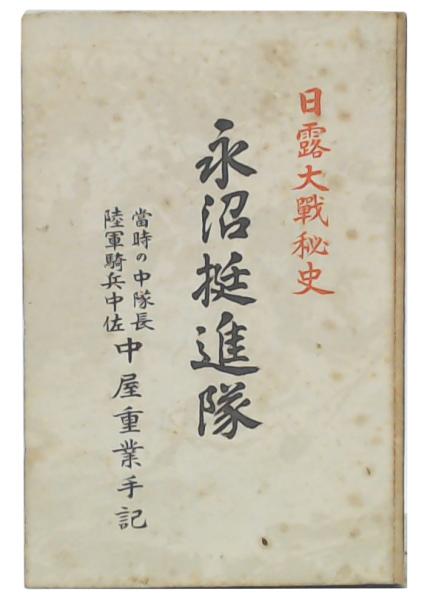 日露大戰秘史
永沼挺進隊
當時の中隊長
陸軍騎兵中佐
中屋重業手記